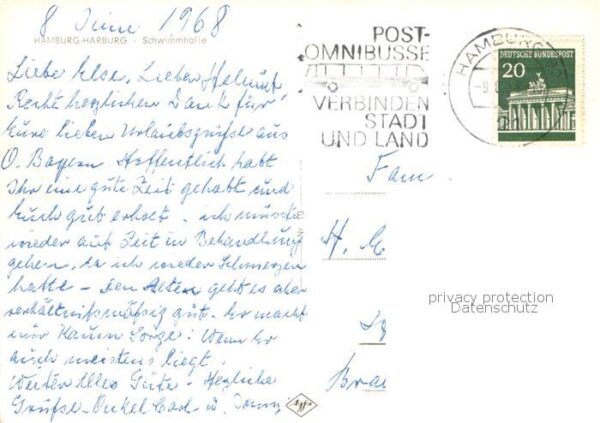 8 Juni 1968
HAMBURG-HARBURG - Schwimmhalle
Liebe Else, Lieber Helmut
Recht herzlichen Dank für
Eure lieben Urlaubsgrüße aus
O. Bayern. Hoffentlich habt
Ihr eine gute Zeit gehabt und
Euch gut erholt. ich musste
wieder auf Zeit in Behandlung
gehen, da ich wieder Schmerzen
hatte - Den Alten geht es aber
verhältnismäßig gut. Er macht
mir kaum Sorge! Wenn Er
auch meistens liegt.
Weiter Alles Gute - Herzliche
Grüße - Onkel Carl u.
POST-
OMNIBUSSE
VERBINDEN
STADT
UND LAND
HAMBURG
-9.6
DEUTSCHE BUNDESPOST
20
Fam
H.
Brau
privacy protection
Datenschutz